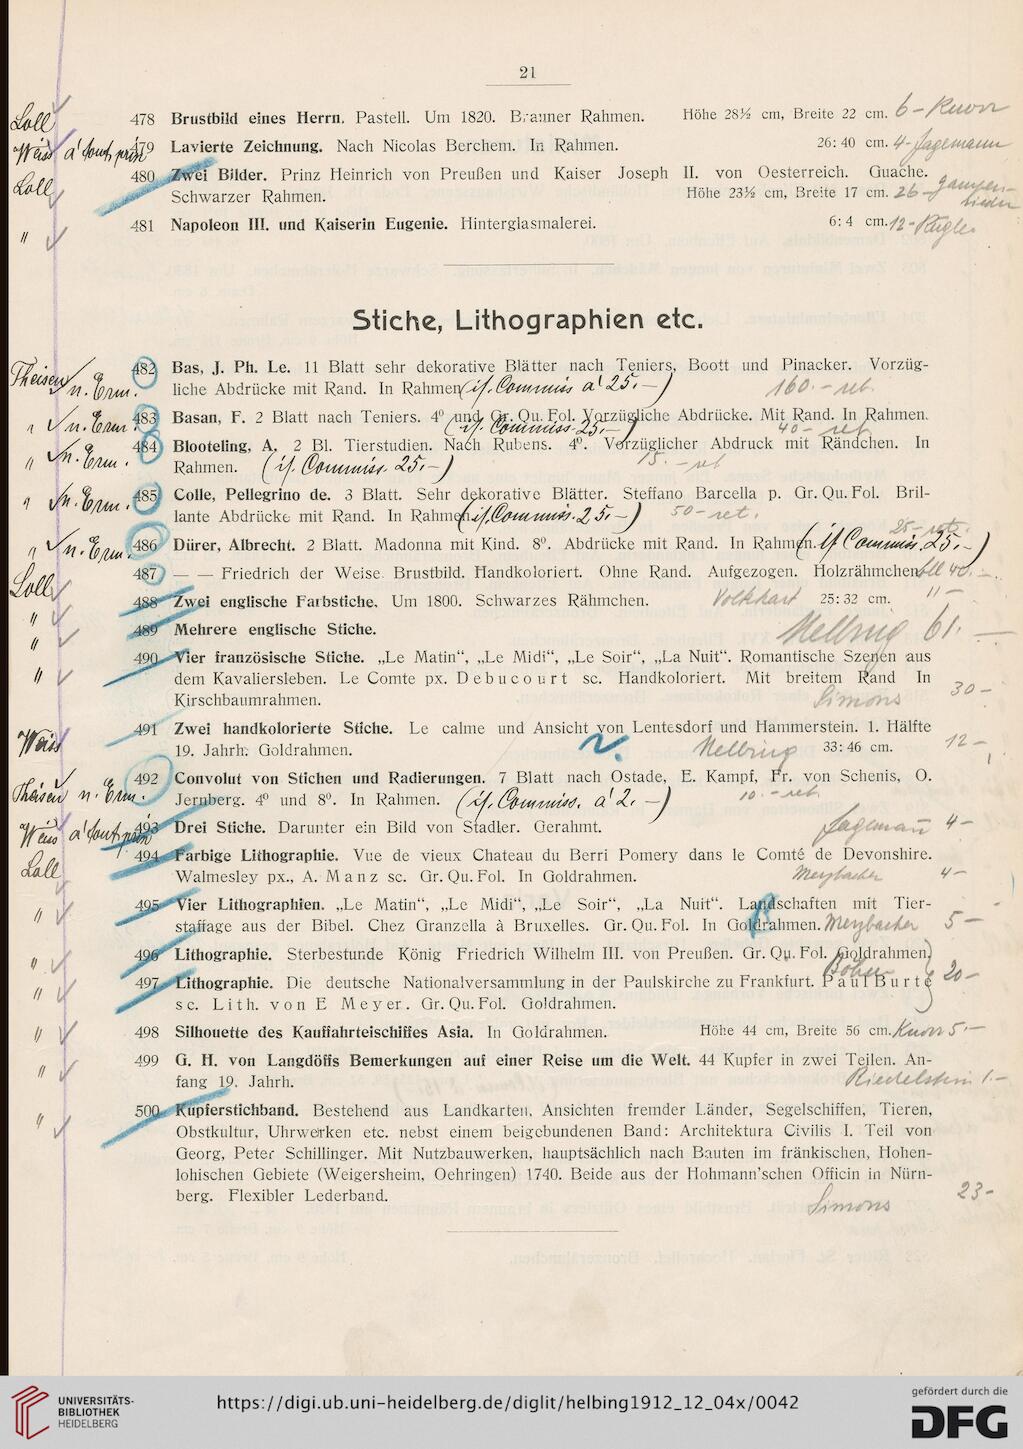 21
Loll 478 Brustbild eines Herrn. Pastell. Um 1820. Brauner Rahmen. Höhe 28½ cm, Breite 22 cm. 6 – Knorr
Weiss à tout prix 479 Lavierte Zeichnung. Nach Nicolas Berchem. In Rahmen. 26 : 40 cm. 4 – Jagemann
Loll 480 Zwei Bilder. Prinz Heinrich von Preußen und Kaiser Joseph II. von Oesterreich. Guache.
Schwarzer Rahmen. Höhe 23½ cm, Breite 17 cm. 26 –
" 481 Napoleon III. und Kaiserin Eugenie. Hinterglasmalerei. 6 : 4 cm. 12 – Kugler
Stiche, Lithographien etc.
Theisen n. Erm. 482 Bas, J. Ph. Le. 11 Blatt sehr dekorative Blätter nach Teniers, Boott und Pinacker. Vorzüg-
liche Abdrücke mit Rand. In Rahmen. (if. Commiss à 25.–) 160.– ret.
" n. Erm. 483 Basan, F. 2 Blatt nach Teniers. 4⁰ und Gr. Qu. Fol. Vorzügliche Abdrücke. Mit Rand. In Rahmen.
(if. Commiss. 25.–) 40 – ret.
" n. Erm. 484 Blooteling, A. 2 Bl. Tierstudien. Nach Rubens. 4⁰. Vorzüglicher Abdruck mit Rändchen. In
Rahmen. (if. Commiss. 25.–) 15. – ret
" n. Erm. 485 Colle, Pellegrino de. 3 Blatt. Sehr dekorative Blätter. Steffano Barcella p. Gr. Qu. Fol. Bril-
lante Abdrücke mit Rand. In Rahmen. (if. Commiss. 25.–) 50 – ret.
25 – ret.
" n. Erm. 486 Dürer, Albrecht. 2 Blatt. Madonna mit Kind. 8⁰. Abdrücke mit Rand. In Rahmen. (if Commiss. 25.–)
Loll 487 — — Friedrich der Weise. Brustbild. Handkoloriert. Ohne Rand. Aufgezogen. Holzrähmchen. 40.–
" 488 Zwei englische Farbstiche. Um 1800. Schwarzes Rähmchen. Volkhart 25 : 32 cm. 11 –
" 489 Mehrere englische Stiche. Helbing 61. –
" 490 Vier französische Stiche. „Le Matin“, „Le Midi“, „Le Soir“, „La Nuit“. Romantische Szenen aus
dem Kavaliersleben. Le Comte px. Debucourt sc. Handkoloriert. Mit breitem Rand In
Kirschbaumrahmen. Simons 30 –
Weiss 491 Zwei handkolorierte Stiche. Le calme und Ansicht von Lentesdorf und Hammerstein. 1. Hälfte
19. Jahrh. Goldrahmen. Helbing 33 : 46 cm. 12 –
Theisen n. Erm. 492 Convolut von Stichen und Radierungen. 7 Blatt nach Ostade, E. Kampf, Fr. von Schenis, O.
Jernberg. 4⁰ und 8⁰. In Rahmen. (if. Commiss. à 2. –) 10. – ret.
Weiss à tout prix 493 Drei Stiche. Darunter ein Bild von Stadler. Gerahmt. Jagemann 4 –
Loll 494 Farbige Lithographie. Vue de vieux Chateau du Berri Pomery dans le Comté de Devonshire.
Walmesley px., A. Manz sc. Gr. Qu. Fol. In Goldrahmen. Merzbacher 4 –
" 495 Vier Lithographien. „Le Matin“, „Le Midi“, „Le Soir“, „La Nuit“. Landschaften mit Tier-
staffage aus der Bibel. Chez Granzella à Bruxelles. Gr. Qu. Fol. In Goldrahmen. Merzbacher 5 –
" 496 Lithographie. Sterbestunde König Friedrich Wilhelm III. von Preußen. Gr. Qu. Fol. Goldrahmen.
" 497 Lithographie. Die deutsche Nationalversammlung in der Paulskirche zu Frankfurt. Paul Burte 20 –
sc. Lith. von E Meyer. Gr. Qu. Fol. Goldrahmen.
" 498 Silhouette des Kauffahrteischiffes Asia. In Goldrahmen. Höhe 44 cm, Breite 56 cm. Knorr 5. –
" 499 G. H. von Langdöffs Bemerkungen auf einer Reise um die Welt. 44 Kupfer in zwei Teilen. An-
fang 19. Jahrh. Riedelstein 1. –
" 500 Kupferstichband. Bestehend aus Landkarten, Ansichten fremder Länder, Segelschiffen, Tieren,
Obstkultur, Uhrwerken etc. nebst einem beigebundenen Band: Architektura Civilis I. Teil von
Georg, Peter Schillinger. Mit Nutzbauwerken, hauptsächlich nach Bauten im fränkischen, Hohen-
lohischen Gebiete (Weigersheim, Oehringen) 1740. Beide aus der Hohmann'schen Officin in Nürn-
berg. Flexibler Lederband. Simons 23 –
UNIVERSITÄTS-
BIBLIOTHEK
HEIDELBERG
https://digi.ub.uni-heidelberg.de/diglit/helbing1912_12_04x/0042
gefördert durch die
DFG